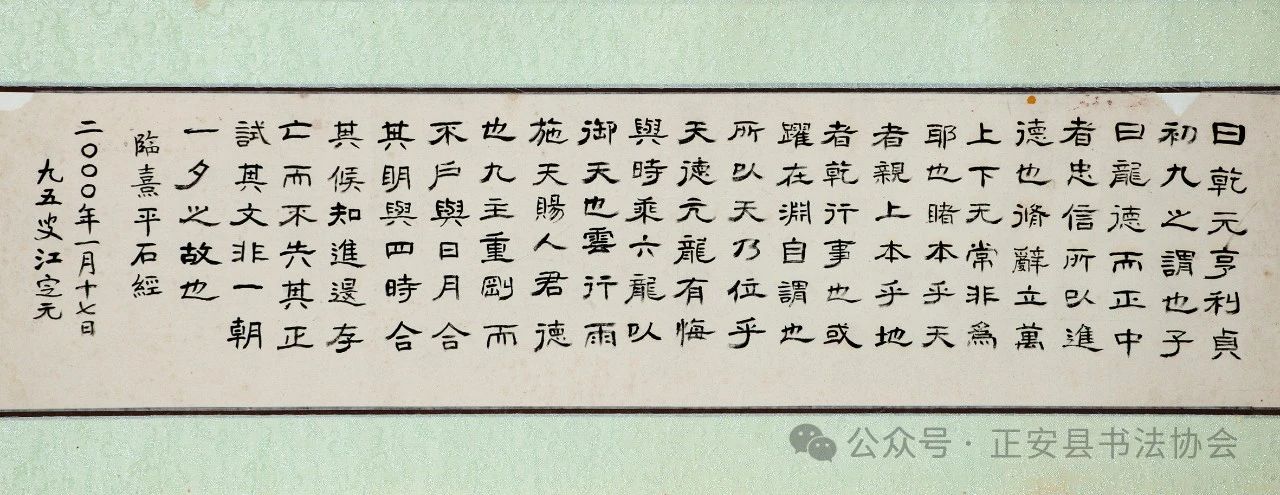 曰乾元亨利貞
初九之謂也子
曰龍德而正中
者忠信所以進
德也脩辭立萬
上下无常非為
耶也睹本乎天
者親上本乎地
者乾行事也或
躍在淵自謂也
所以天乃位乎
天德亢龍有悔
與時乘六龍以
御天也雲行雨
施天賜人君德
也九主重剛而
不戶與日月合
其明與四時合
其候知進退存
亡而不失其正
試其文非一朝
一夕之故也
臨熹平石經
二〇〇〇年一月十七日
九五叟江定元
公众号·正安县书法协会